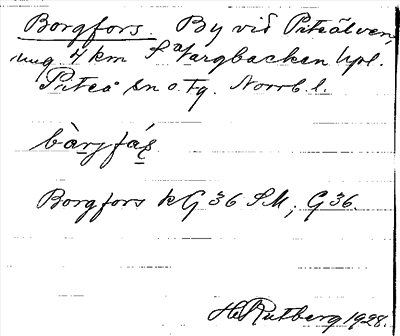 Borgfors. By vid Piteälven,
ung. 4 km S Vargbacken hpl.
Piteå sn o. tg. Norrb. l.
bàrjfás̱
Borgfors kG 36 SM; G 36.
H. Rutberg 1928.